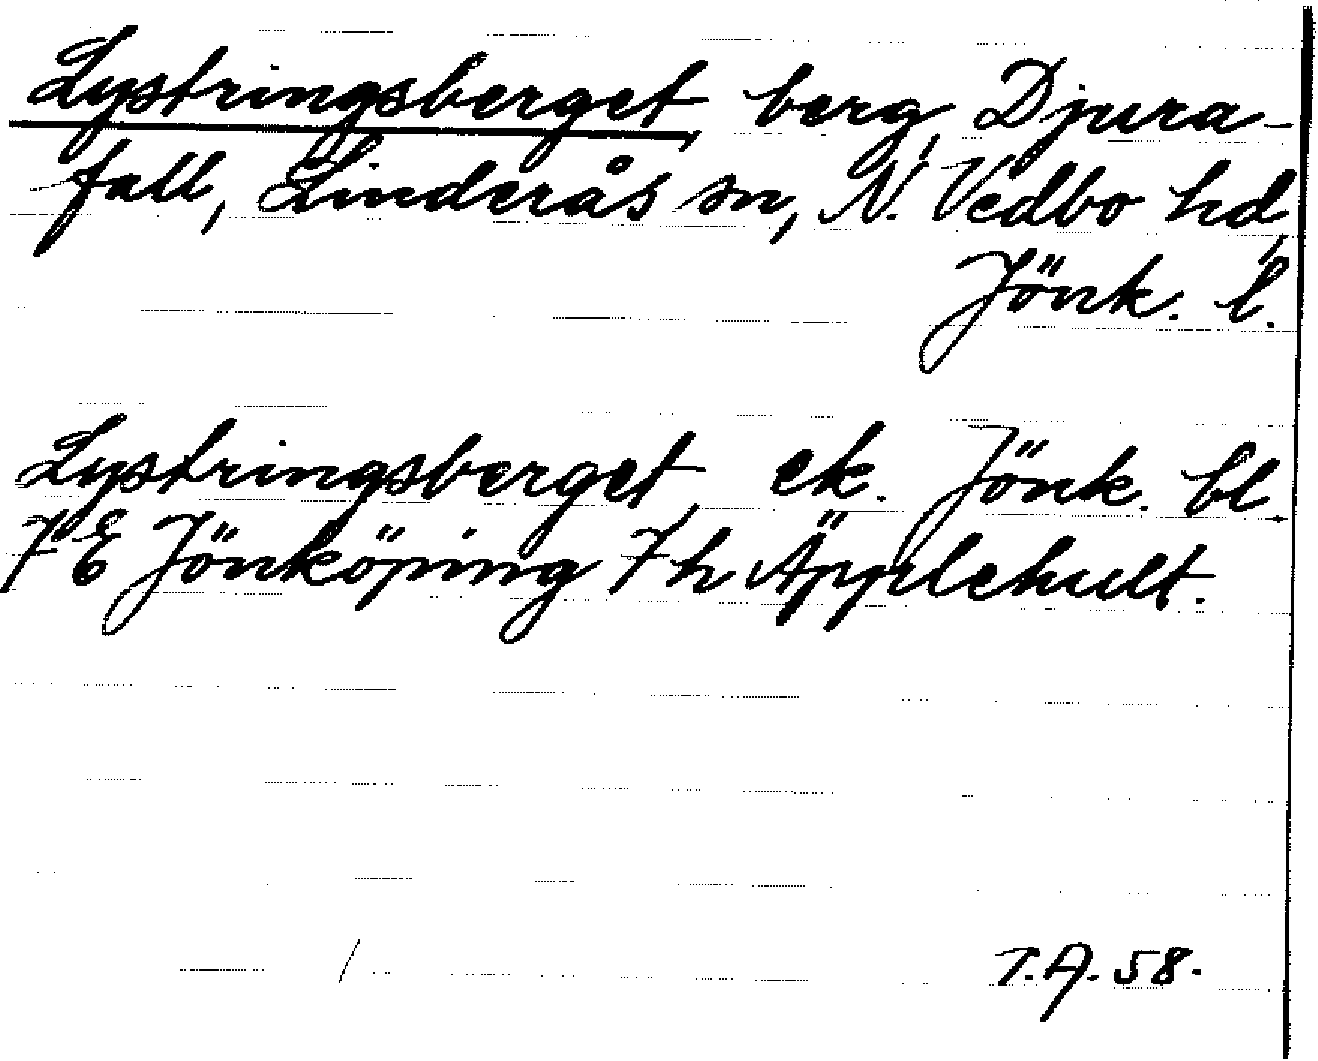 Lystringsberget, berg, Djura-
fall, Linderås sn, N. Vedbo hd,
Jönk. l.
Lystringsberget, ek. Jönk. bl
7 E Jönköping 7 h Äpplehult.
T.A. 58.